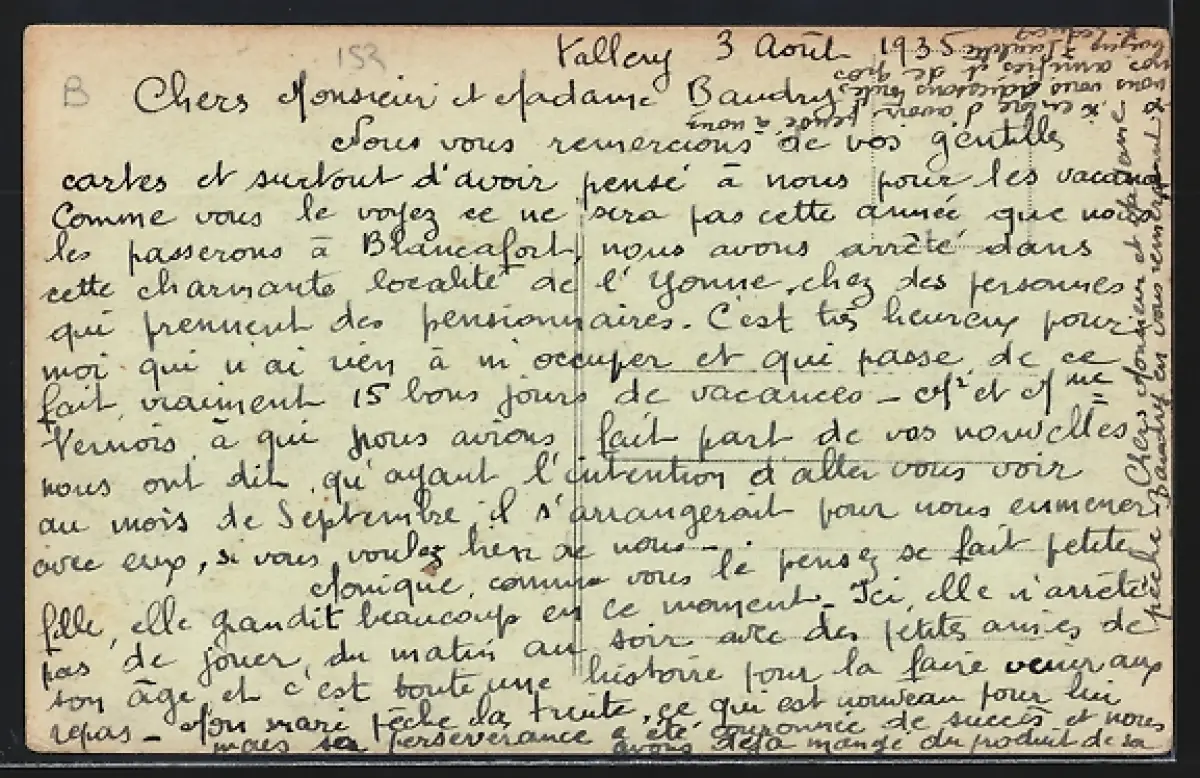 152
B
Vallery 3 Août 1935
Chers Monsieur et Madame Baudry,
Nous vous remercions de vos gentilles
cartes et surtout d'avoir pensé à nous pour les vacances
Comme vous le voyez ce ne sera pas cette année que nous
les passerons à Blancafort, nous avons arrêté dans
cette charmante localité de l'Yonne, chez des personnes
qui prennent des pensionnaires. C'est très heureux pour
moi qui n'ai rien à m'occuper et qui passe de ce
fait vraiment 15 bons jours de vacances - Mr et Mme
Vernois à qui nous avions fait part de vos nouvelles
nous ont dit qu'ayant l'intention d'aller vous voir
au mois de Septembre, il s'arrangerait pour nous emmener
avec eux, si vous voulez bien de nous -
Monique, comme vous le pensez se fait petite
fille, elle grandit beaucoup en ce moment - Ici, elle n'arrête
pas de jouer, du matin au soir avec des petites amies de
son âge, et c'est toute une histoire pour la faire venir aux
repas - Mon mari pêche la truite, ce qui est nouveau pour lui
mais sa persévérance a été couronnée de succès et nous
avons déjà mangé du produit de sa
pêche. Chers Monsieur et Madame
Baudry en vous remerciant
encore d'avoir pensé à nous
nous vous adressons toutes
nos amitiés et de gros